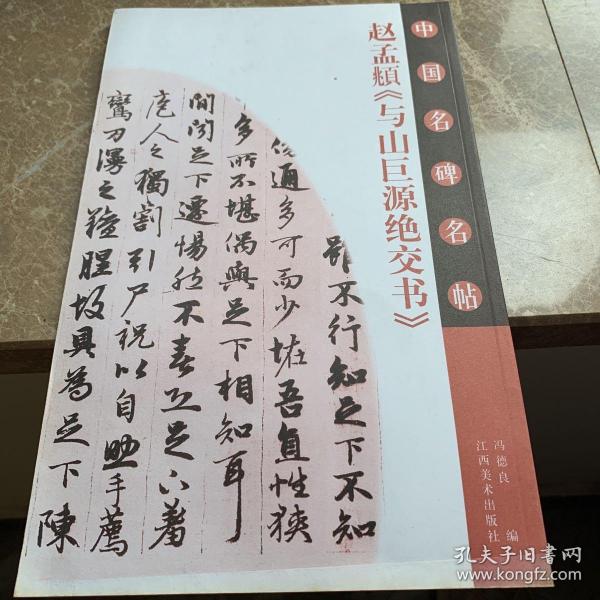 中国名碑名帖
赵孟頫《与山巨源绝交书》
冯德良 编
江西美术出版社
雖不行知足下不知
傍通多可而少恠吾直性狹
多所不堪偶與足下相知耳
間聞足下遷惕然不喜恐足下羞
庖人之獨割引尸祝以自助手薦
鸞刀漫之羶腥故具為足下陳
孔夫子旧书网
www.kongfz.com